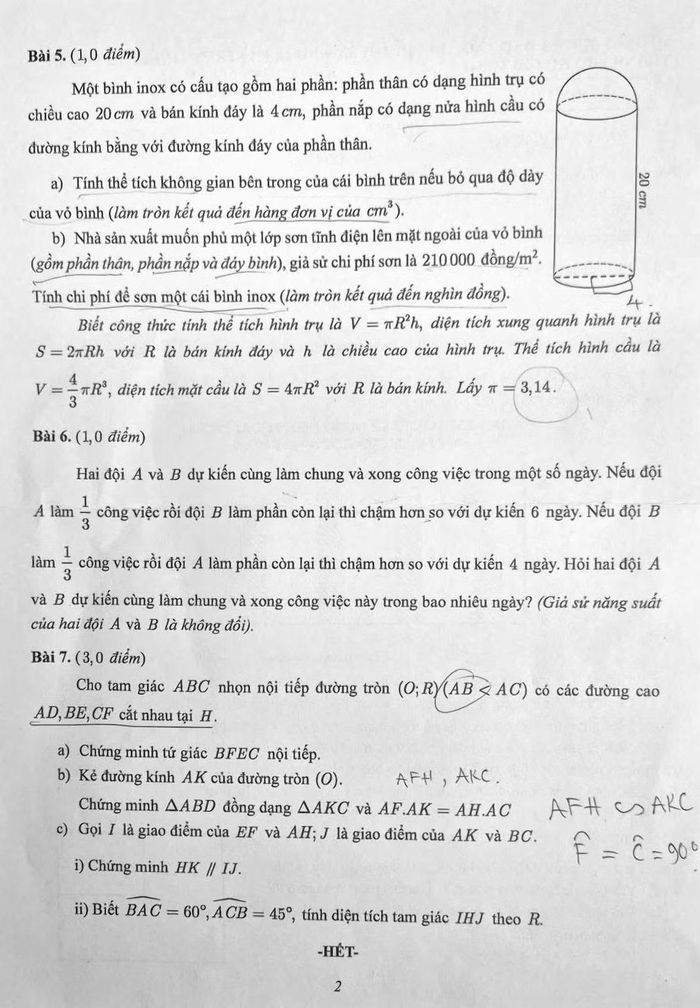 Bài 5. (1,0 điểm)
Một bình inox có cấu tạo gồm hai phần: phần thân có dạng hình trụ có
chiều cao 20 cm và bán kính đáy là 4 cm, phần nắp có dạng nửa hình cầu có
đường kính bằng với đường kính đáy của phần thân.
a) Tính thể tích không gian bên trong của cái bình trên nếu bỏ qua độ dày
của vỏ bình (làm tròn kết quả đến hàng đơn vị của cm³).
b) Nhà sản xuất muốn phủ một lớp sơn tĩnh điện lên mặt ngoài của vỏ bình
(gồm phần thân, phần nắp và đáy bình), giả sử chi phí sơn là 210 000 đồng/m².
Tính chi phí để sơn một cái bình inox (làm tròn kết quả đến nghìn đồng).
20 cm
4.
Biết công thức tính thể tích hình trụ là V = πR²h, diện tích xung quanh hình trụ là
S = 2πRh với R là bán kính đáy và h là chiều cao của hình trụ. Thể tích hình cầu là
V = 4/3 πR³, diện tích mặt cầu là S = 4πR² với R là bán kính. Lấy π = 3,14.
Bài 6. (1,0 điểm)
Hai đội A và B dự kiến cùng làm chung và xong công việc trong một số ngày. Nếu đội
A làm 1/3 công việc rồi đội B làm phần còn lại thì chậm hơn so với dự kiến 6 ngày. Nếu đội B
làm 1/3 công việc rồi đội A làm phần còn lại thì chậm hơn so với dự kiến 4 ngày. Hỏi hai đội A
và B dự kiến cùng làm chung và xong công việc này trong bao nhiêu ngày? (Giả sử năng suất
của hai đội A và B là không đổi).
Bài 7. (3,0 điểm)
Cho tam giác ABC nhọn nội tiếp đường tròn (O; R) (AB < AC) có các đường cao
AD, BE, CF cắt nhau tại H.
a) Chứng minh tứ giác BFEC nội tiếp.
b) Kẻ đường kính AK của đường tròn (O). AFH , AKC.
Chứng minh ΔABD đồng dạng ΔAKC và AF.AK = AH.AC AFH ∽ AKC
c) Gọi I là giao điểm của EF và AH; J là giao điểm của AK và BC.
F̂ = Ĉ = 90°
i) Chứng minh HK // IJ.
ii) Biết B͡AC = 60°, A͡CB = 45°, tính diện tích tam giác IHJ theo R.
-HẾT-
2